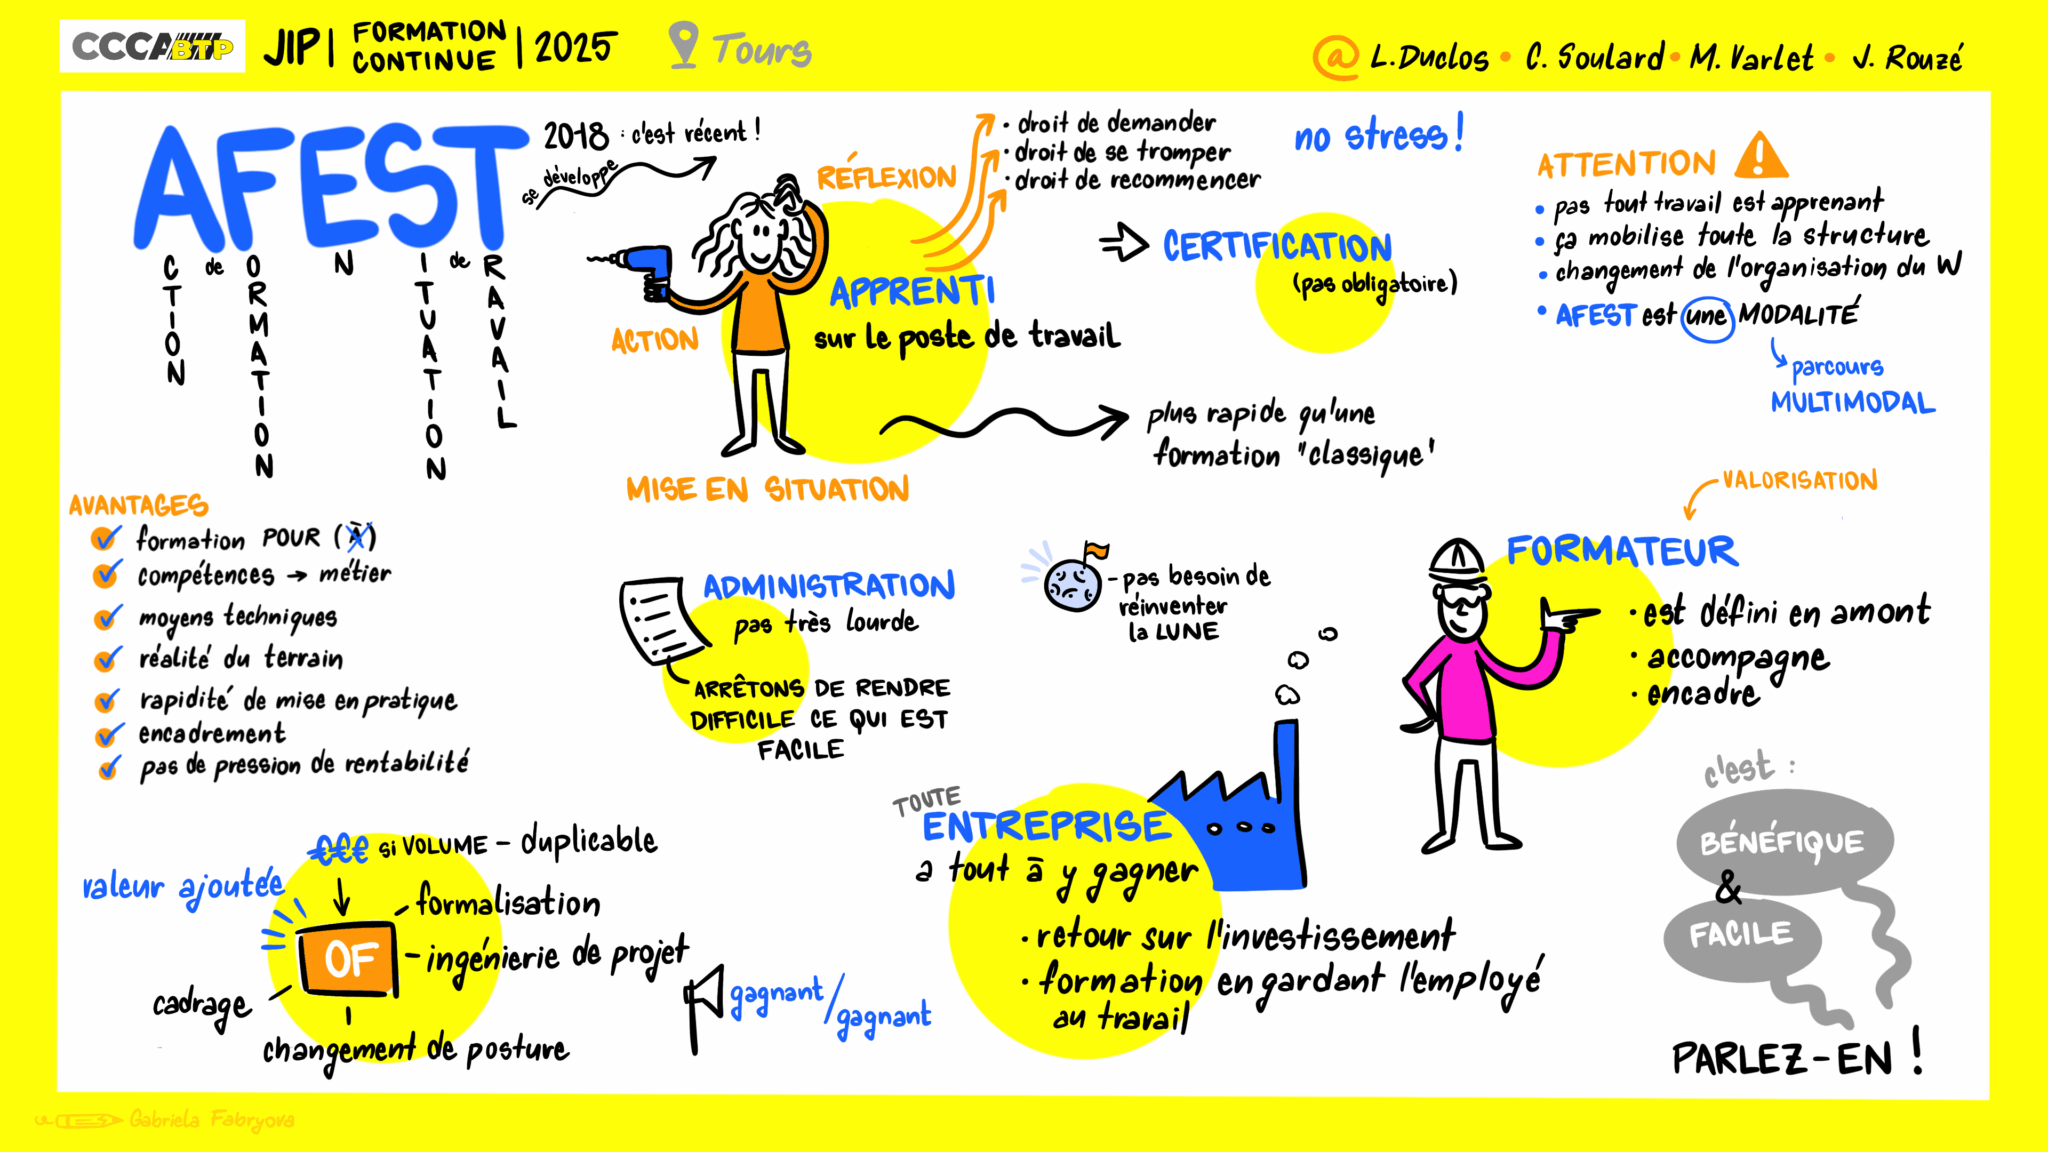 CCCA BTP
JIP | FORMATION CONTINUE | 2025
Tours
@ L.Duclos • C. Soulard • M. Varlet • J. Rouzé
AFEST
ACTION de FORMATION EN SITUATION de TRAVAIL
2018 : c'est récent !
se développe
RÉFLEXION
• droit de demander
• droit de se tromper
• droit de recommencer
no stress !
ACTION
APPRENTI
sur le poste de travail
MISE EN SITUATION
CERTIFICATION
(pas obligatoire)
plus rapide qu'une
formation "classique"
ATTENTION
• pas tout travail est apprenant
• ça mobilise toute la structure
• changement de l'organisation du W
• AFEST est une MODALITÉ
parcours
MULTIMODAL
AVANTAGES
formation POUR (À)
compétences → métier
moyens techniques
réalité du terrain
rapidité de mise en pratique
encadrement
pas de pression de rentabilité
ADMINISTRATION
pas très lourde
ARRÊTONS DE RENDRE
DIFFICILE CE QUI EST
FACILE
- pas besoin de
réinventer
la LUNE
VALORISATION
FORMATEUR
• est défini en amont
• accompagne
• encadre
valeur ajoutée
€€€ si VOLUME - duplicable
OF
formalisation
- ingénierie de projet
cadrage
changement de posture
gagnant/
gagnant
TOUTE
ENTREPRISE
a tout à y gagner
• retour sur l'investissement
• formation en gardant l'employé
au travail
c'est :
BÉNÉFIQUE
&
FACILE
PARLEZ-EN !
Gabriela Fabryova